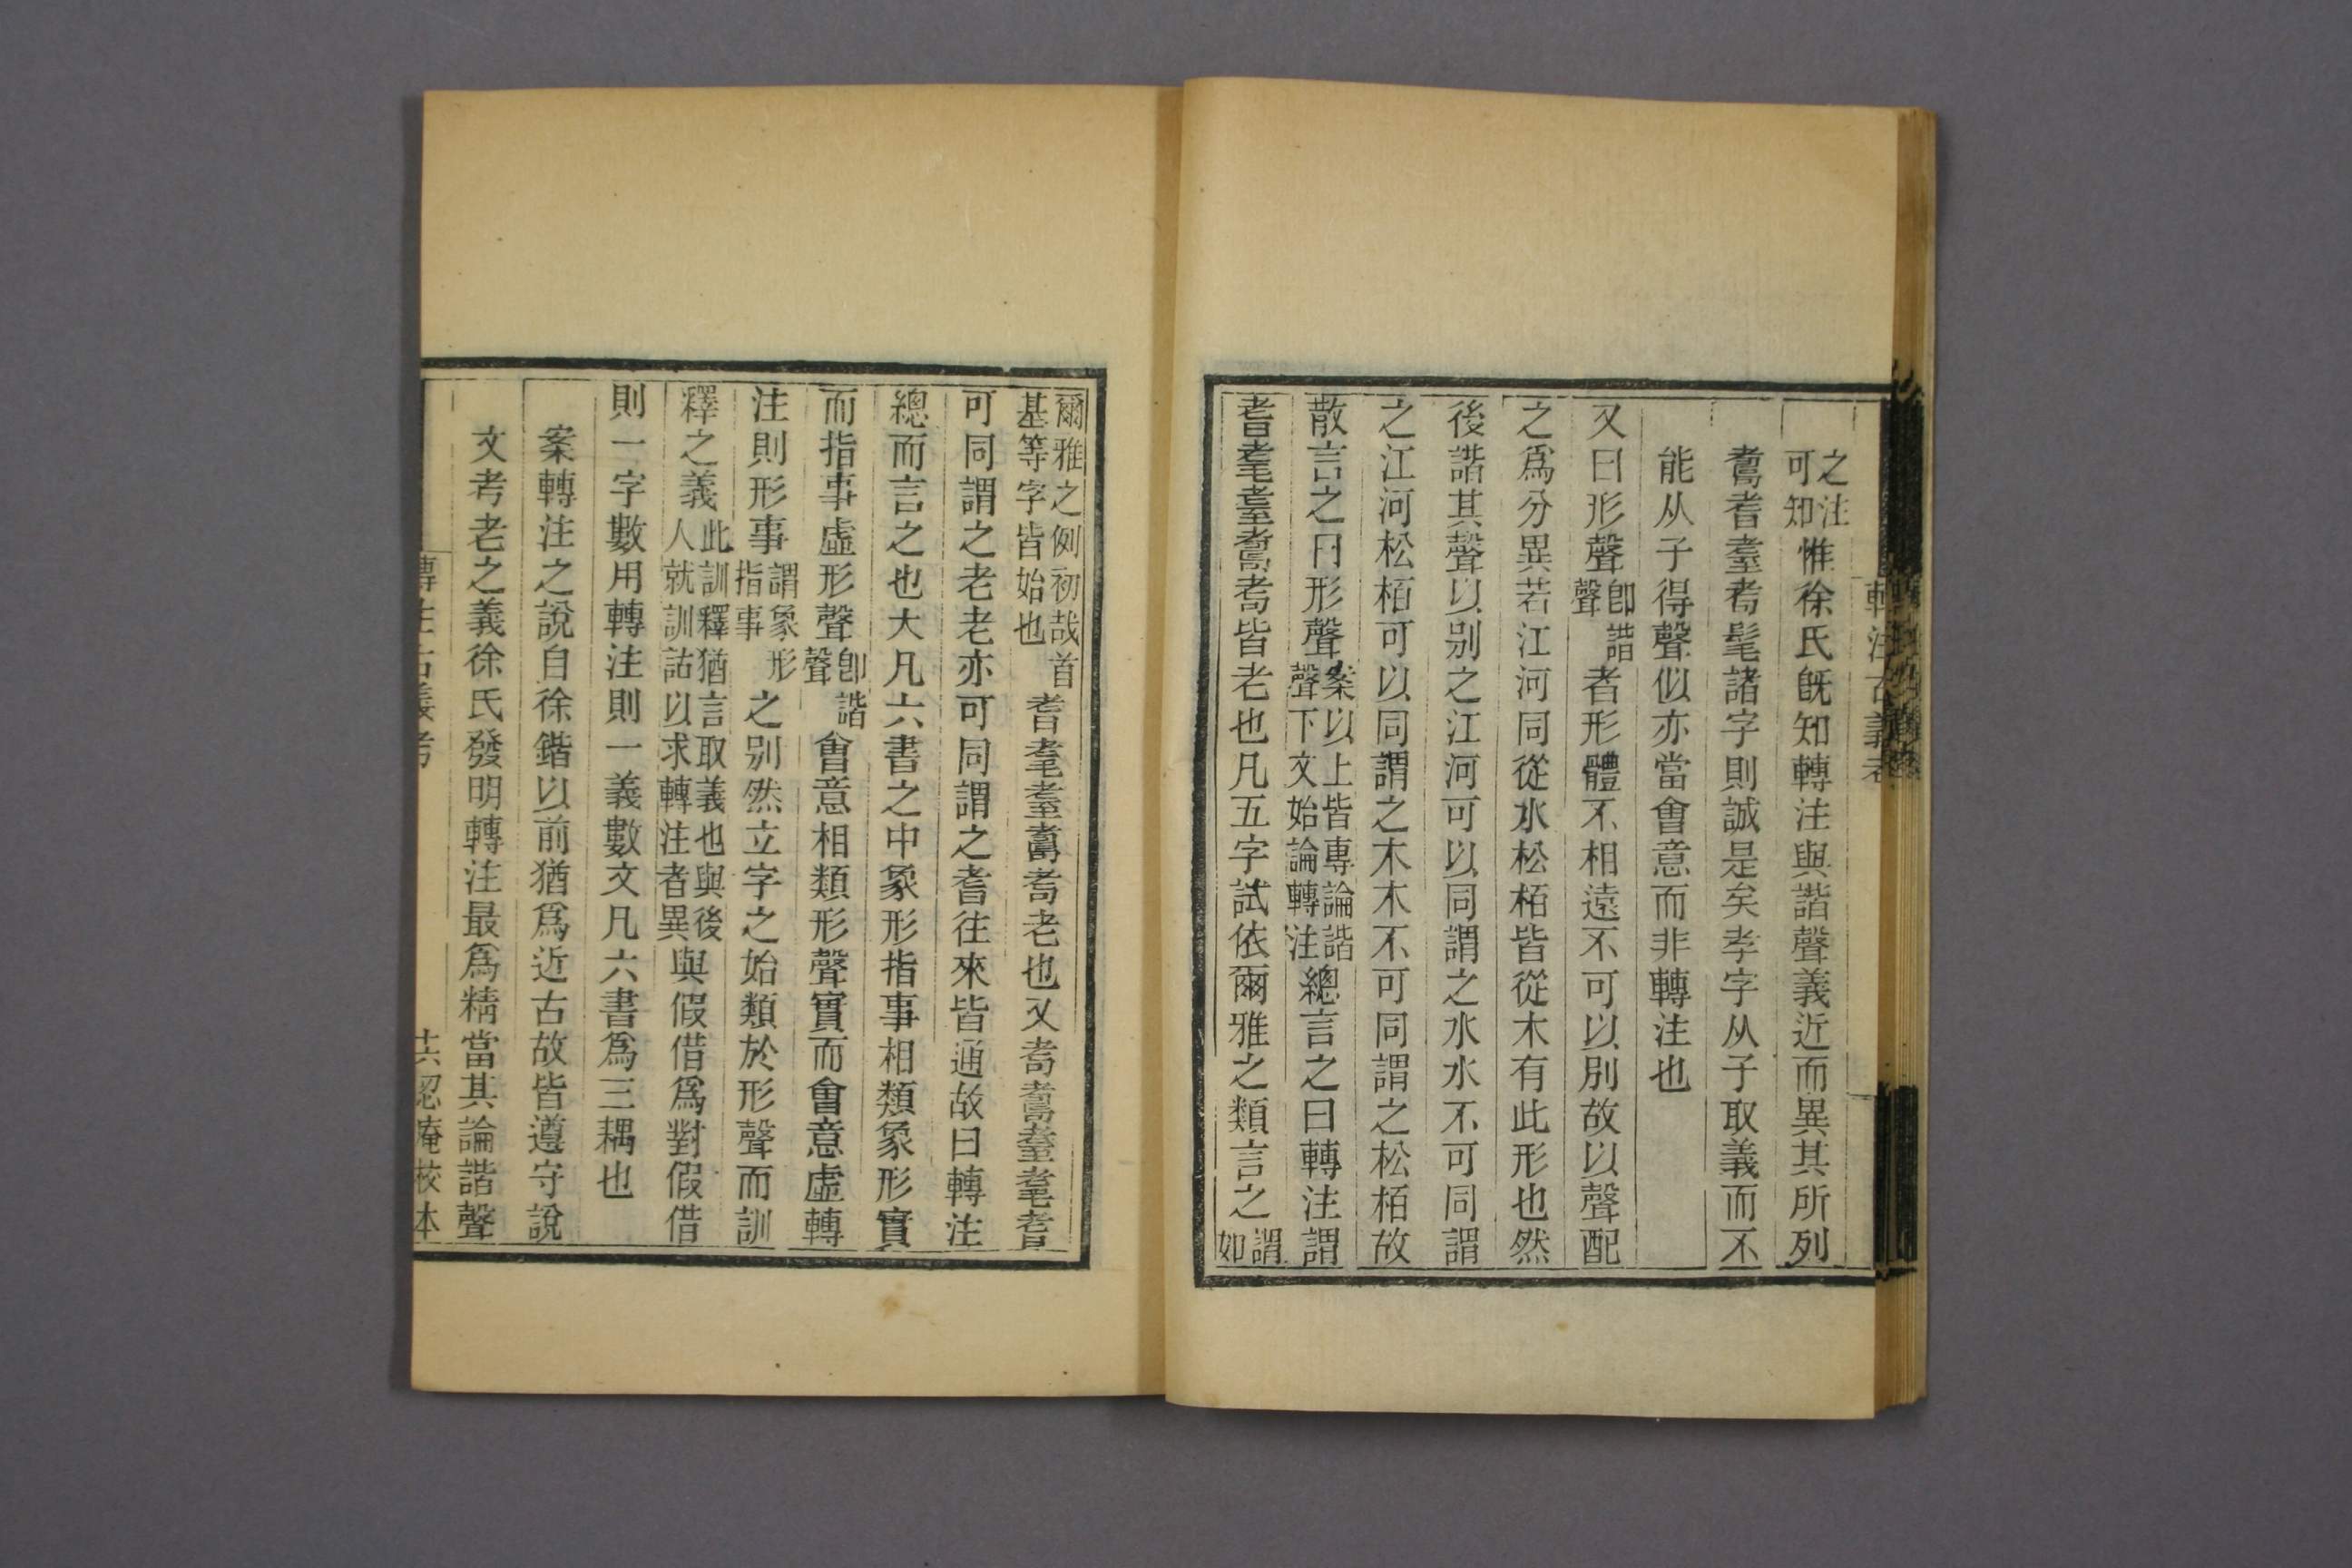 轉注古義考
之注可知惟徐氏旣知轉注與諧聲義近而異其所列
壽耆耋耇髦諸字則誠是矣孝字从子取義而不
能从子得聲似亦當會意而非轉注也
又曰形聲卽諧聲者形體不相遠不可以別故以聲配
之爲分異若江河同從水松栢皆從木有此形也然
後諧其聲以別之江河可以同謂之水水不可同謂
之江河松栢可以同謂之木木不可同謂之松栢故
散言之曰形聲案以上皆專論諧聲下文始論轉注總言之曰轉注謂
耆耄耋壽耇皆老也凡五字試依爾雅之類言之謂如
爾雅之例初哉首基等字皆始也耆耄耋壽耇老也又耇壽耋耄耆
可同謂之老老亦可同謂之耆往來皆通故曰轉注
總而言之也大凡六書之中象形指事相類象形實
而指事虛形聲卽諧聲會意相類形聲實而會意虛轉
注則形事謂象形指事之別然立字之始類於形聲而訓
釋之義此訓釋猶言取義也與後人就訓詁以求轉注者異與假借爲對假借
則一字數用轉注則一義數文凡六書爲三耦也
案轉注之說自徐鍇以前猶爲近古故皆遵守說
文考老之義徐氏發明轉注最爲精當其論諧聲
轉注古義考